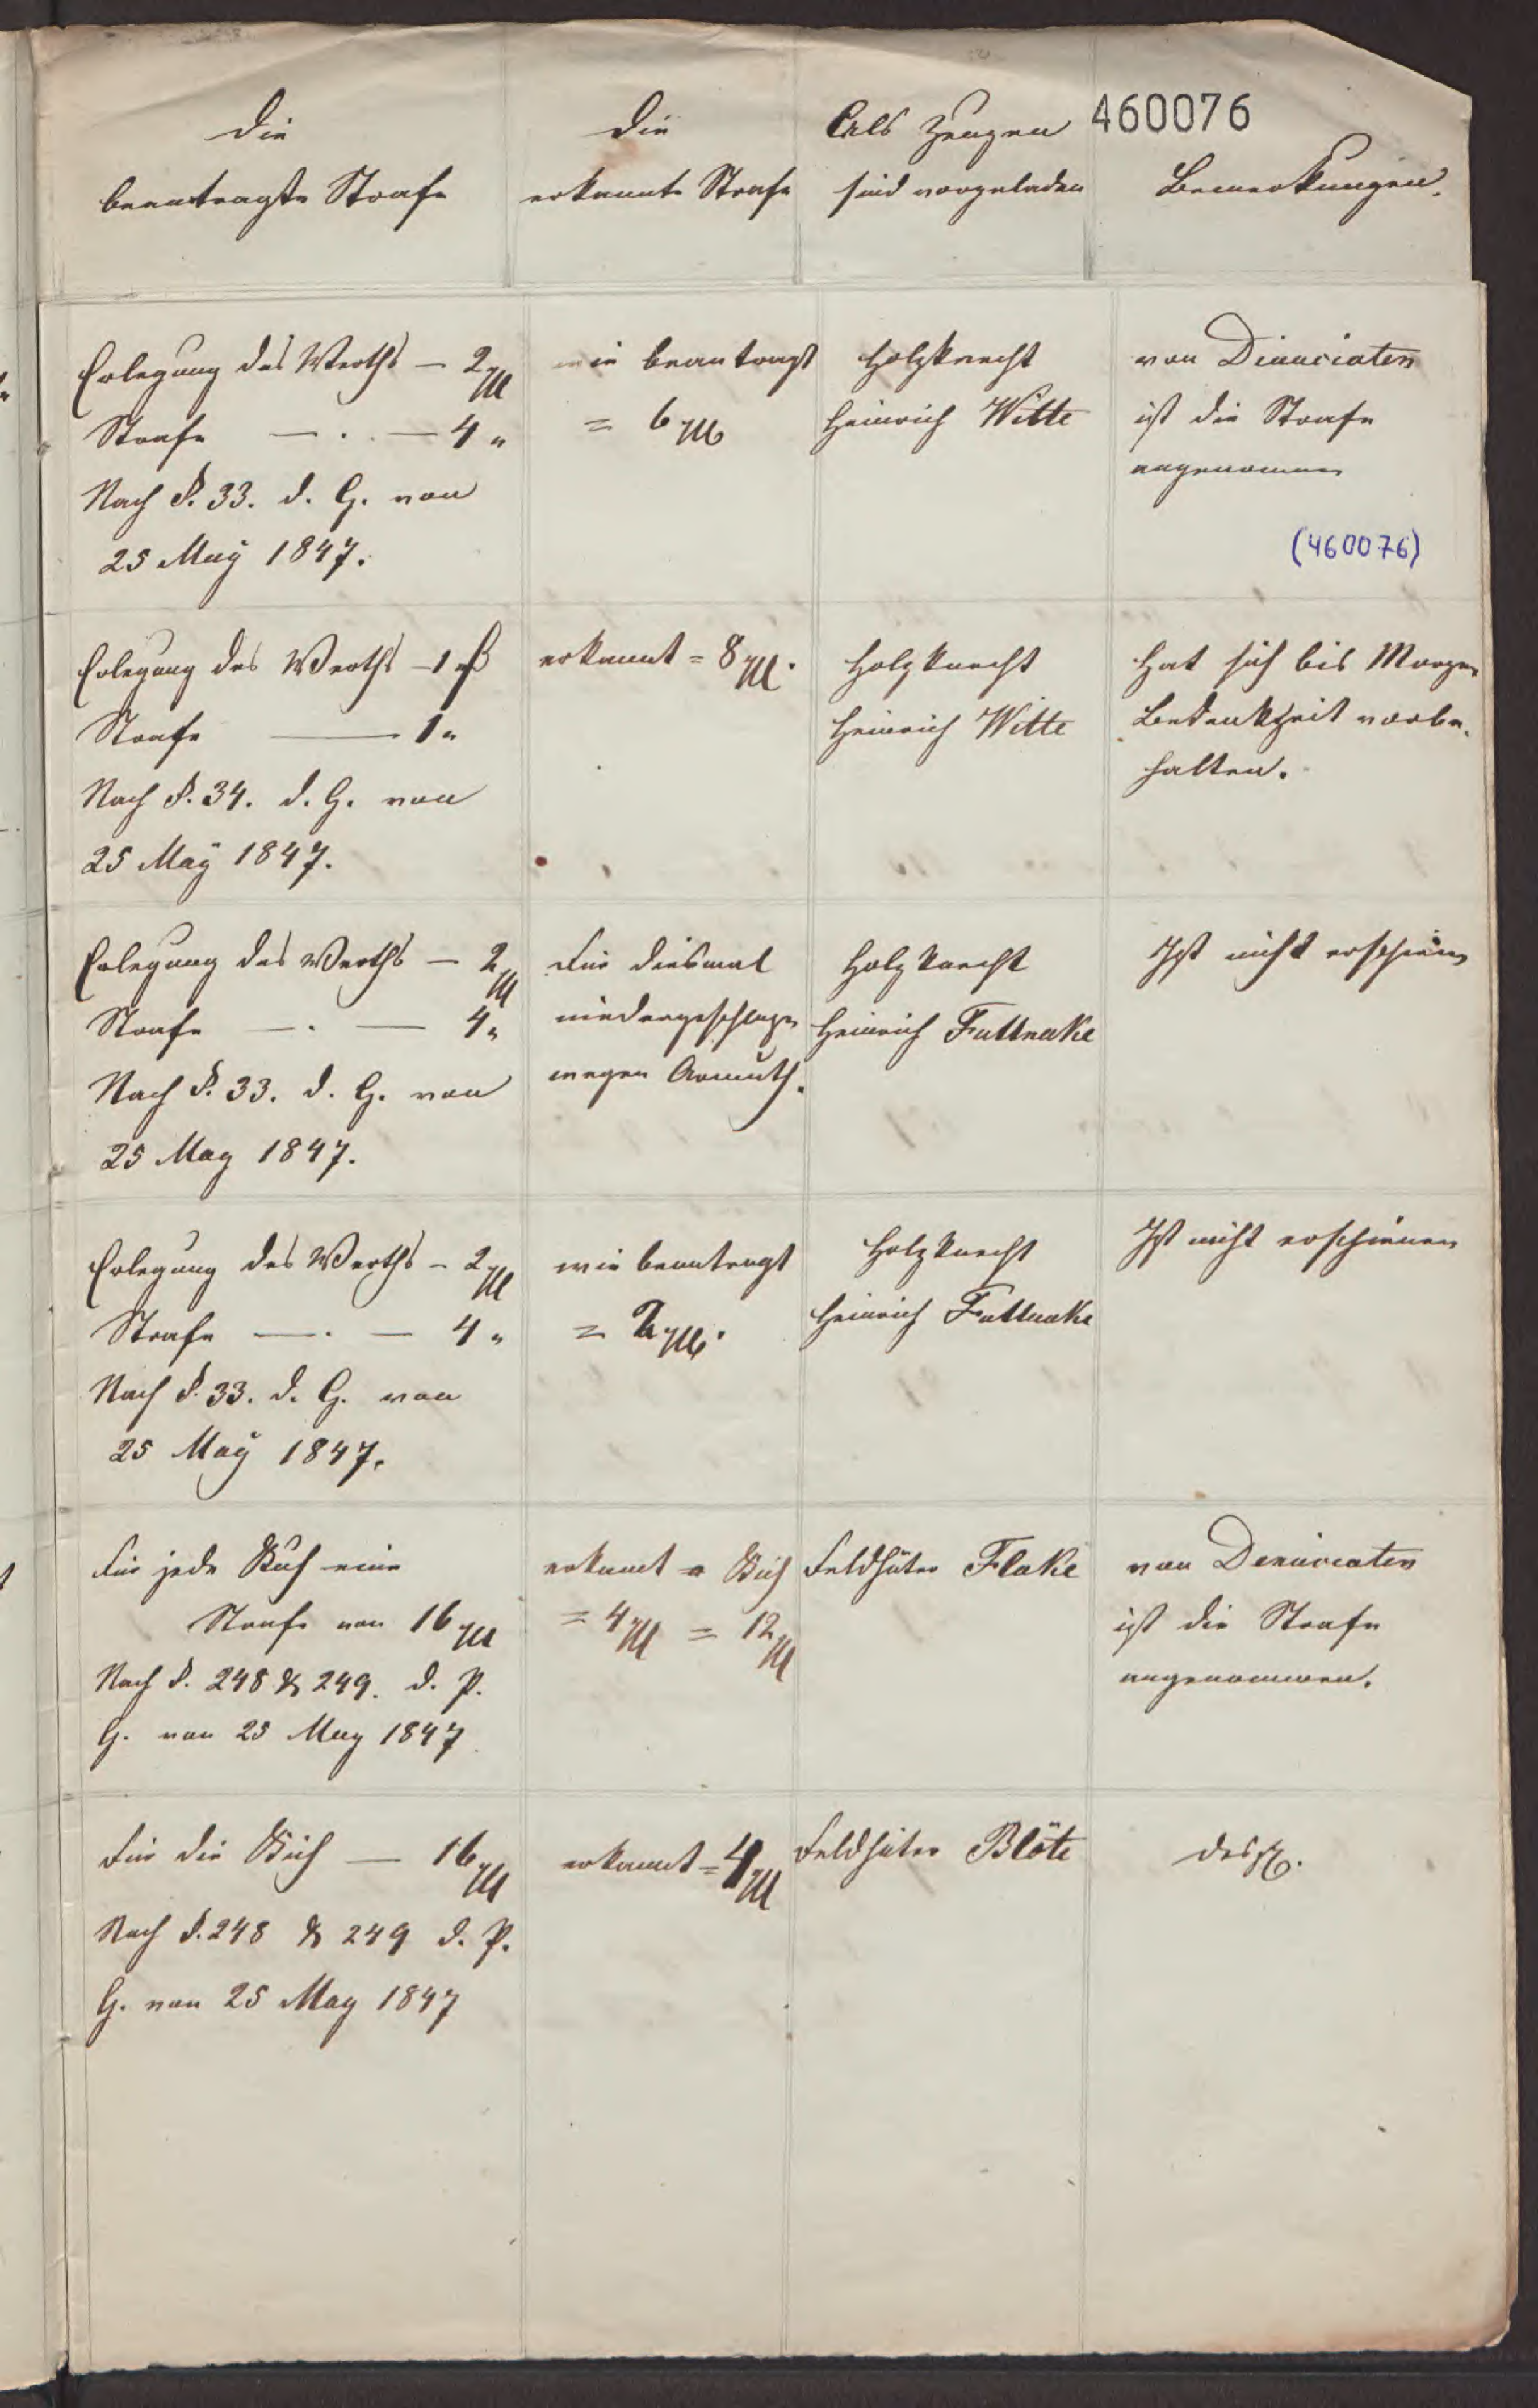 460076
Die
beantragte Strafe
Die
erkannte Strafe
Als Zeugen
sind vorgeladen
Bemerkungen.
Erlegung des Werths — 2 ggl
Strafe — . — 4 "
Nach §. 33. d. G. von
25 May 1847.
wie beantragt
= 6 ggl
Holzknecht
Heinrich Witte
von Dinunciaten
ist die Strafe
angenommen
(460076)
Erlegung des Werths — 1 ggl
Strafe — 1 "
Nach §. 34. d. G. von
25 May 1847.
erkannt = 8 ggl.
Holzknecht
Heinrich Witte
Hat sich bis Morgen
Bedenkzeit vorbe-
halten.
Erlegung des Werths — 2 ggl
Strafe — . — 4 "
Nach §. 33. d. G. von
25 May 1847.
Für diesmal
niedergeschlagen
wegen Armuth.
Holzknecht
Heinrich Futtnake
Ist nicht erschienen
Erlegung des Werths — 2 ggl
Strafe — . — 4 "
Nach §. 33. d. G. von
25 May 1847.
wie beantragt
= ggl.
Holzknecht
Heinrich Futtnake
Ist nicht erschienen
Für jede Kuh eine
Strafe von 16 ggl
Nach §. 248 & 249. d. P.
G. von 25 May 1847
erkannt a Kuh
= 4 ggl = 12 ggl
Feldhüter Flake
von Denunciaten
ist die Strafe
angenommen.
Für die Kuh — 16 ggl
Nach §. 248 & 249 d. P.
G. von 25 May 1847
erkannt = 4 ggl
Feldhüter Blöte
desgl.